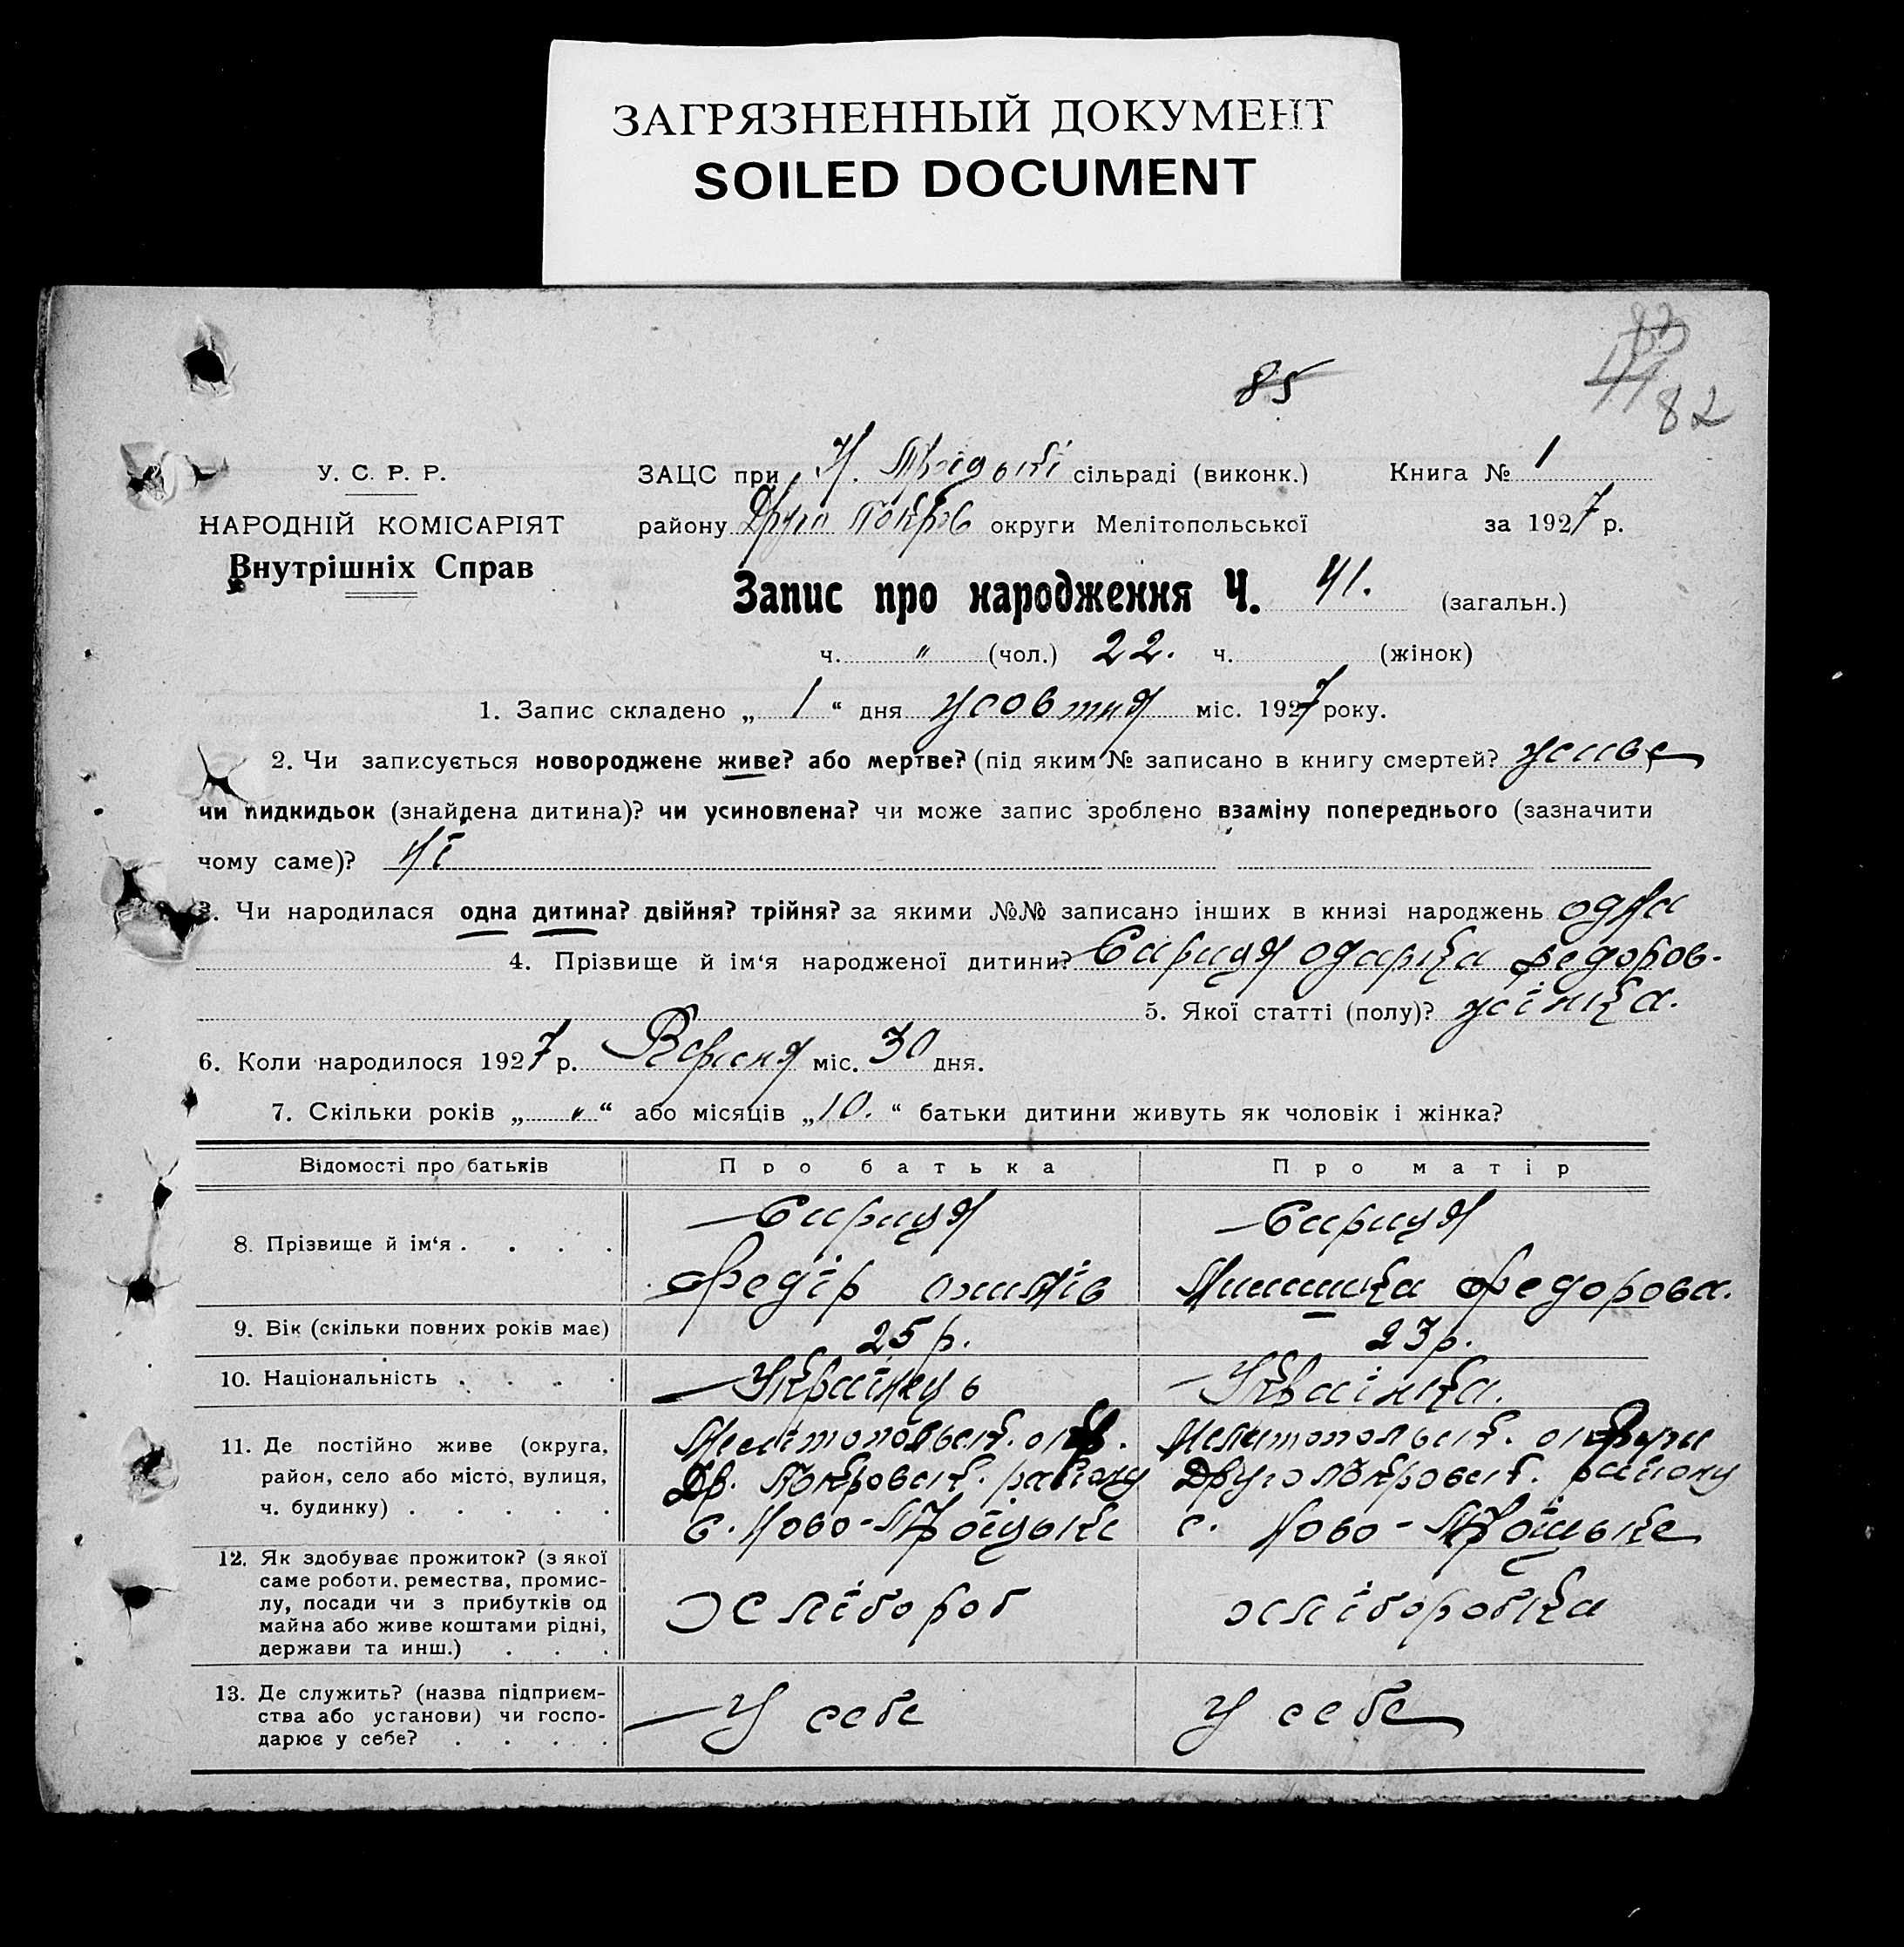 ЗАГРЯЗНЕННЫЙ ДОКУМЕНТ
SOILED DOCUMENT
85
82
У. С. Р. Р.
НАРОДНІЙ КОМІСАРІЯТ
Внутрішніх Справ
ЗАЦС при Н. Троіцькі сільраді (виконк.) Книга № 1
району Друго Покров округи Мелітопольської за 1927 р.
Запис про народження Ч. 41. (загальн.)
ч. " (чол.) 22. ч. (жінок)
1. Запис складено „ 1 “ дня жовтня міс. 1927 року.
2. Чи записується новороджене живе? або мертве? (під яким № записано в книгу смертей? живе
чи підкидьок (знайдена дитина)? чи усиновлена? чи може запис зроблено взаміну попереднього (зазначити
чому саме)? Ні
3. Чи народилася одна дитина? двійня? трійня? за якими №№ записано інших в книзі народжень одна
4. Прізвище й ім‘я народженої дитини? Сириця Одарка Федоров-
5. Якої статті (полу)? жінка.
6. Коли народилося 1927 р. Вересня міс. 30 дня.
7. Скільки років „ " “ або місяців „ 10. “ батьки дитини живуть як чоловік і жінка?
Відомості про батьків Про батька Про матір
8. Прізвище й ім‘я . . . . Сириця Сириця
Федір Федорова.
9. Вік (скільки повних років має) 25 р. 23 р.
10. Національність . . . . Українець Українка.
11. Де постійно живе (округа, Мелітопольськ. окр. Мелітопольськ. округи
район, село або місто, вулиця, Др. Покровськ. району Друго Покровськ. району
ч. будинку) . . . . . с. Ново-Троїцьке с. Ново-Троїцьке
12. Як здобуває прожиток? (з якої
саме роботи, ремества, промис-
лу, посади чи з прибутків од хлібороб хліборобка
майна або живе коштами рідні,
держави та инш.) . . .
13. Де служить? (назва підприєм-
ства або установи) чи госпо- У себе У себе
дарює у себе? . . . .